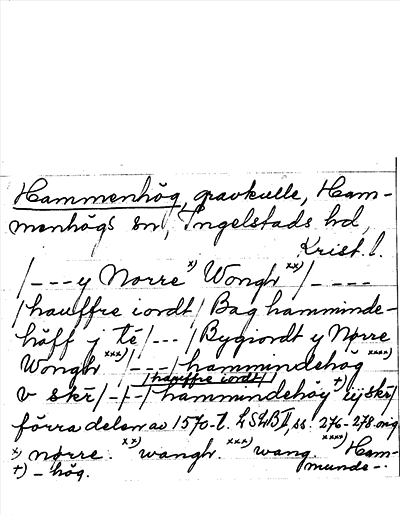 Hammenhög, gravkulle, Ham-
menhögs sn, Ingelstads hd,
Krist. l.
/--- y Norre x) Wongh xx)/----
/hauffre iordt/ Bag hamminde-
höff j té/---/Bygiordt y Nørre
Wongh xxx)/---/hammindehög xxxx)
/hauffre iordt/
v skr̄/-/-/hammindehöy +) iij skr̄/
förra delen av 1570-t. LSLB II, ss. 276-278. orig
x) nørre. xx) wangh. xxx) wang. xxxx) Ham-
+) -hög. munde-.